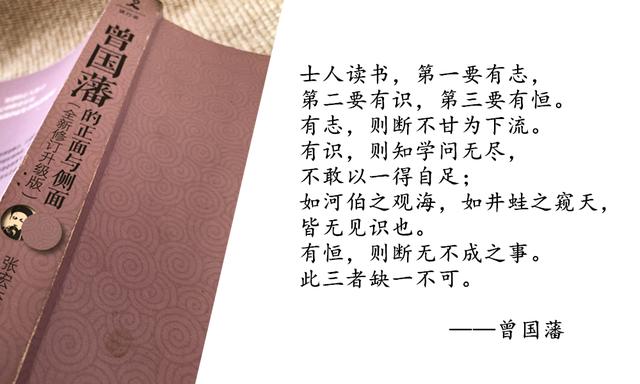 曾国藩
的正面与侧面
(全新修订升级版)
张宏
士人读书，第一要有志，
第二要有识，第三要有恒。
有志，则断不甘为下流。
有识，则知学问无尽，
不敢以一得自足；
如河伯之观海，如井蛙之窥天，
皆无见识也。
有恒，则断无不成之事。
此三者缺一不可。
——曾国藩